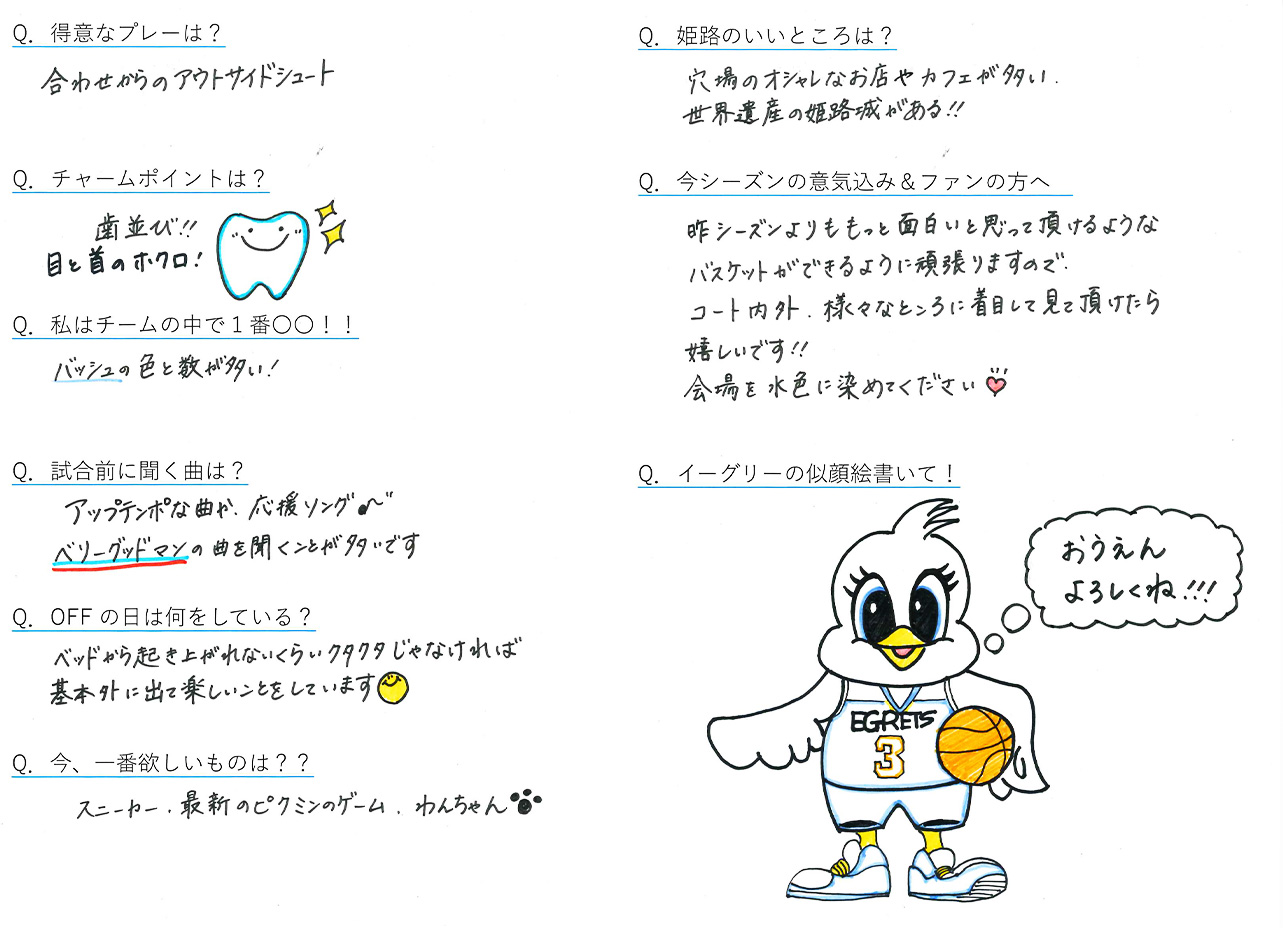 Q. 得意なプレーは？
合わせからのアウトサイドシュート
Q. チャームポイントは？
歯並び!!
目と首のホクロ!
Q. 私はチームの中で１番〇〇！！
バッシュの色と数が多い!
Q. 試合前に聞く曲は？
アップテンポな曲や、応援ソング♪
ベリーグッドマンの曲を聞くことが多いです
Q. OFF の日は何をしている？
ベッドから起き上がれないくらいクタクタじゃなければ
基本外に出て楽しいことをしています
Q. 今、一番欲しいものは？？
スニーカー、最新のピクミンのゲーム、わんちゃん
Q. 姫路のいいところは？
穴場のオシャレなお店やカフェが多い、
世界遺産の姫路城がある!!
Q. 今シーズンの意気込み＆ファンの方へ
昨シーズンよりももっと面白いと思って頂けるような
バスケットができるように頑張りますので、
コート内外、様々なところに着目して見て頂けたら
嬉しいです!!
会場を水色に染めてください
Q. イーグリーの似顔絵書いて！
おうえん
よろしくね!!!
EGRETS
3